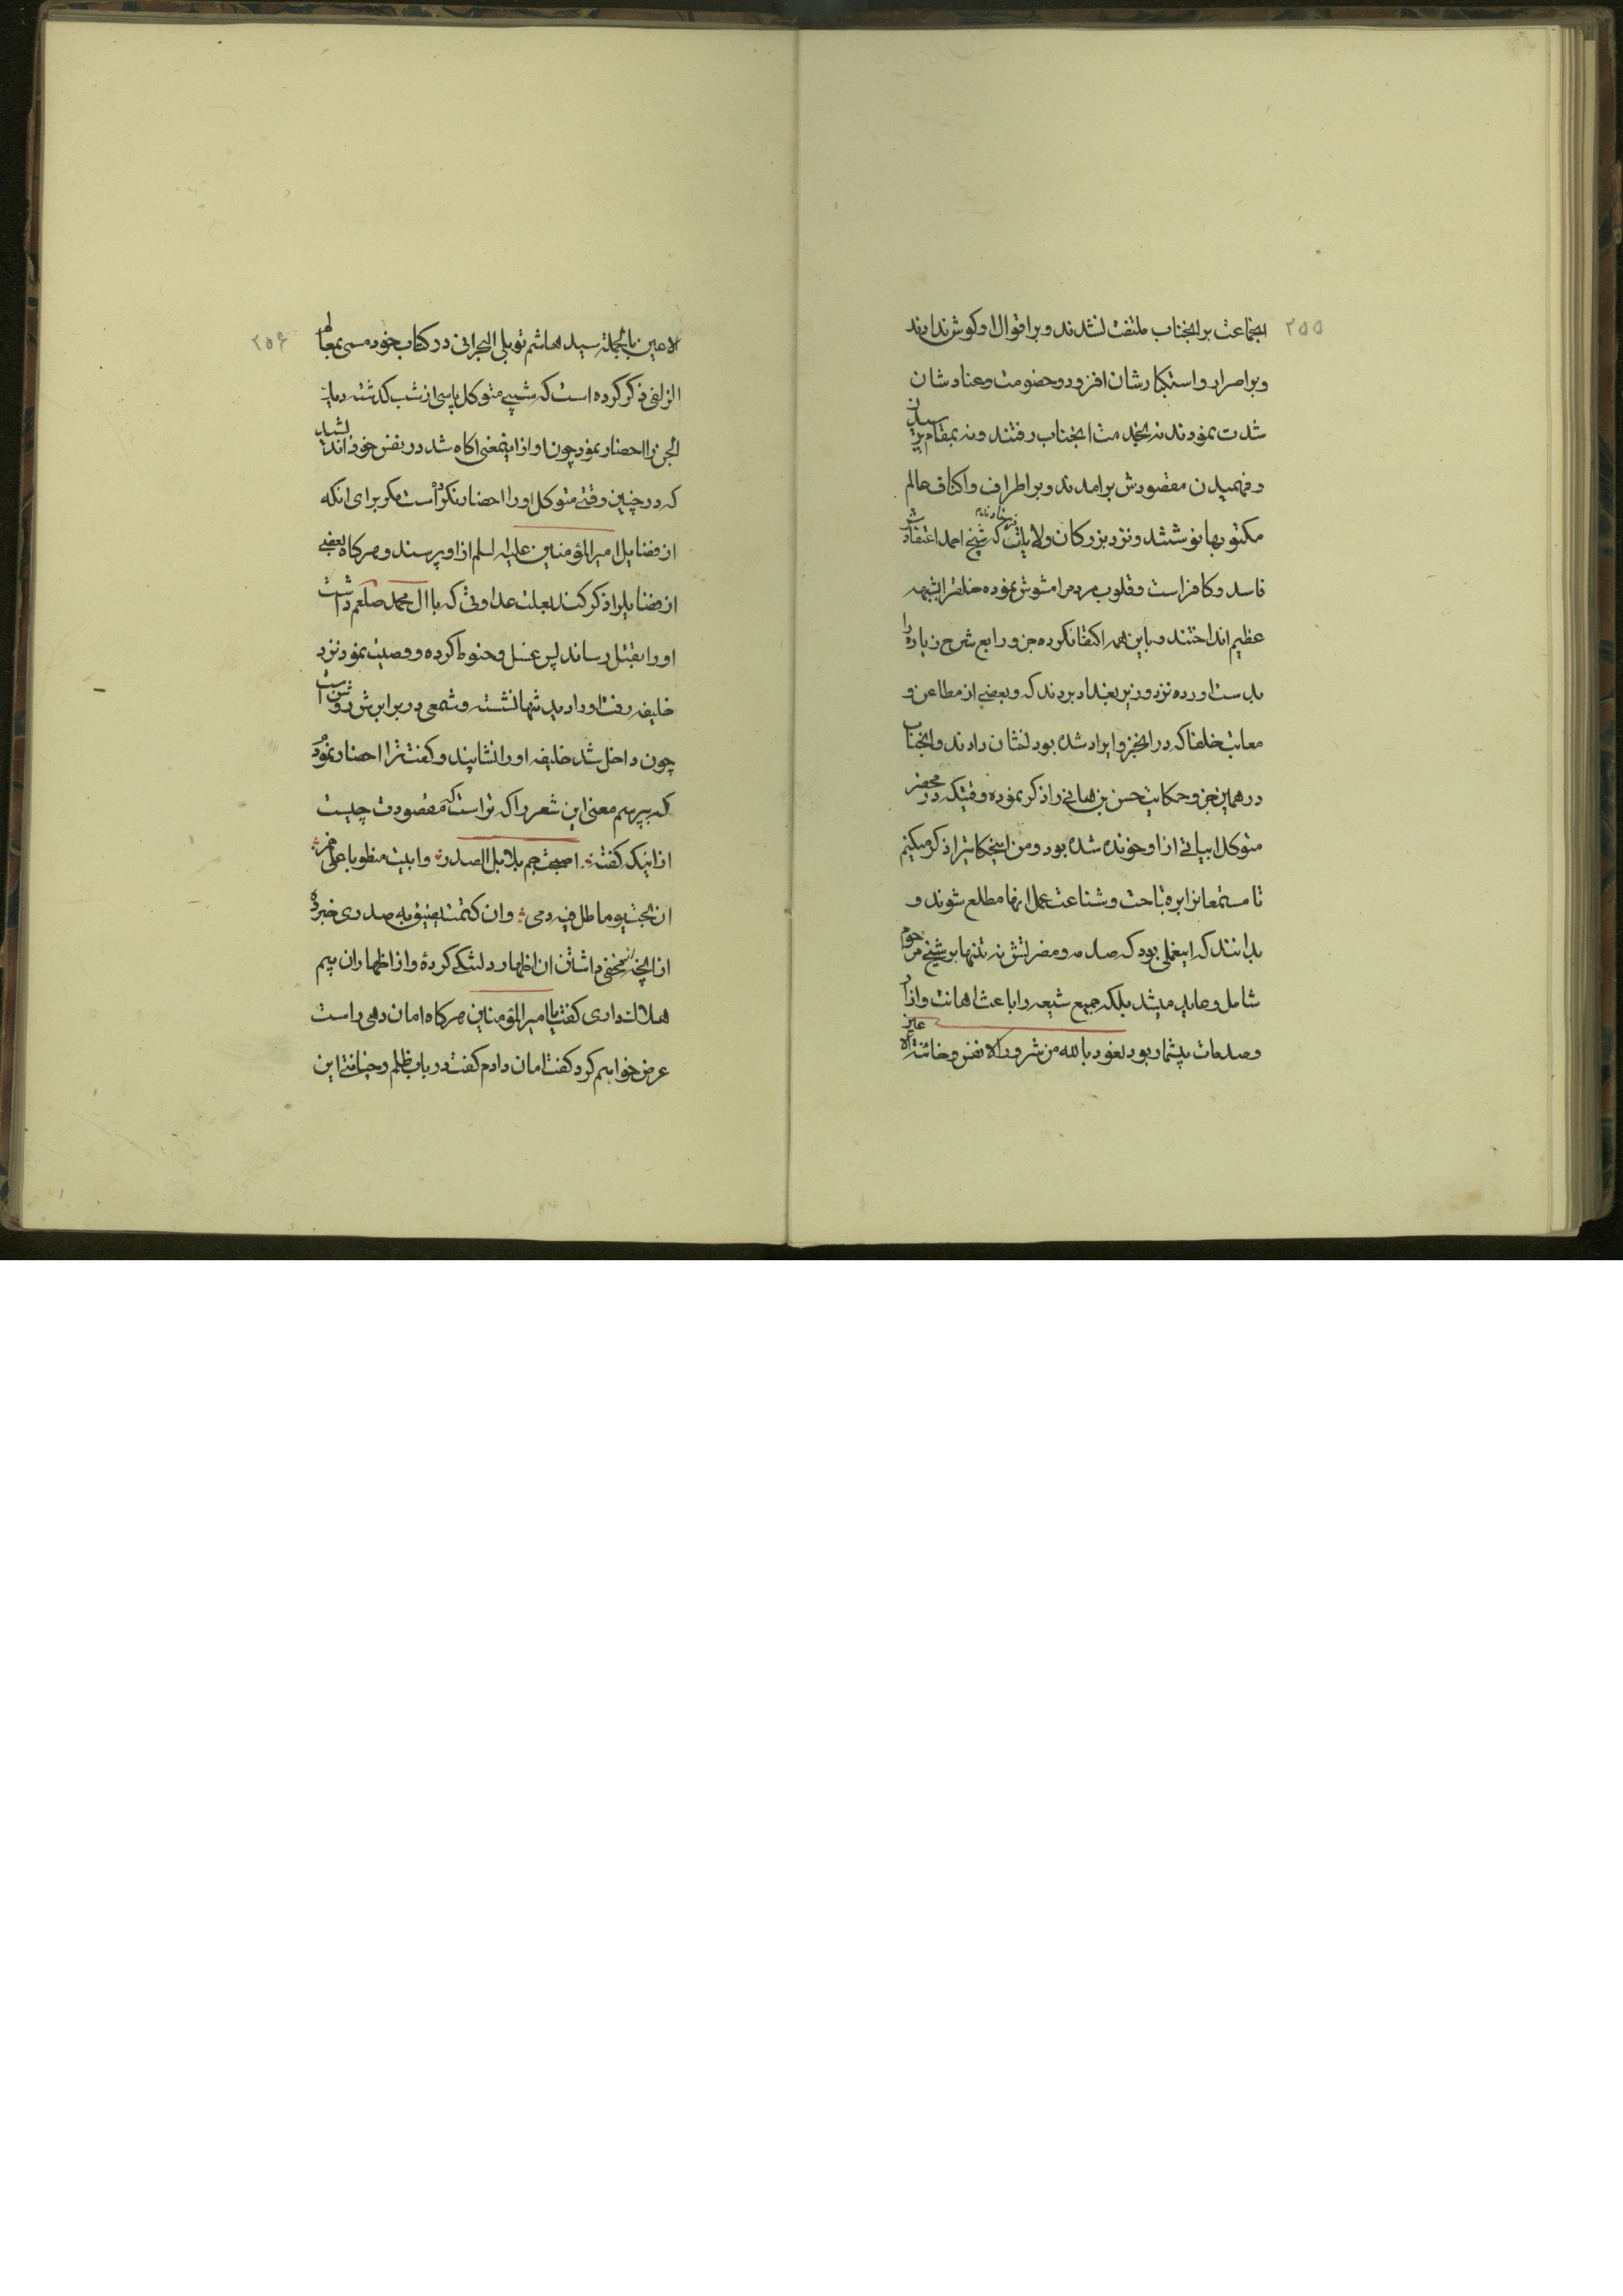 ۲۵۵
انجماعت بر انجناب ملتفت نشدند و بر اقوال او کوش ندادند
و بر اصرار و استکبارشان افزود و خصومت و عنادشان
شدت نمودند نه بخدمت انجناب رفتند و نه بمقام پرسیدن
و فهمیدن مقصودش برامدند و بر اطراف و اکناف عالم
مکتوبها نوشتند و نزد بزرکان ولایات فرستادند که شیخ احمد اعتقادش
فاسد و کافر است و قلوب مردم را مشوش نموده خلقرا بشبهه
عظیم انداختند و باین همه اکتفا نکرده جزو رابع شرح زیاره را
بدست اورده نزد وزیر بغداد بردند که و بعضی از مطاعن و
معایب خلفا که در انجزو ایراد شده بود نشان دادند و انجناب
در همین جزو حکایت حسن بن هانی را ذکر نموده وقتیکه در محضر
متوکل ابیاتی از او خونده شده بود و من اینحکایترا ذکر میکنیم
تا مستمعانرا بر قباحت و شناعت عمل انها مطلع شوند و
بدانند که اینعملی بود که صدمه و مضرلتش نه تنها بر شیخ مرحوم
شامل و عاید میشد بلکه جمیع شیعه را باعث اهانت و ازار
و صدمات بیشمار بود نعوذ بالله من شرور الانفس و خائنة الا عین
۲۵۶
لاعین بالجمله سید هاشم توبلی البحرانی در کتاب خود مسمی بمعالم
الزلفی ذکر کرده است که شبی متوکل پاسی از شب کذشته
الجن را احضار نمود چون او از اینمعنی اکاه شد در نفس خود اندیشید
که در چنین وقتی متوکل او را احضار نکرده است مکر برای انکه
از فضایل امیرالمؤمنین علیه السلم از او پرسند و هرکاه بعضی
از فضایلرا ذکر کند بعلت عداوتی که با ال محمد صلعم داشت
او را بقتل رساند پس غسل و حنوط کرده و وصیت نمود نزد
خلیفه رفت او را دید تنها نشسته و شمعی در برابرش روشن است
چون داخل شد خلیفه او را نشانید و کفت ترا احضار نمودم
که بپرسم معنی این شعر را که تراست که مقصودت چیست
از اینکه کفته اصبحت جم بلابل الصدر و ابیت منطویا علی جمر
ان بحت یوما طل فیه دمی و ان کتمت یضیق به صدری خبر ده
از انچه مخفی داشتن ان اظهار دلتنکی کردهٔ و از اظهار ان بیم
هلاکت داری کفت یا امیرالمؤمنین هرکاه امان دهی راست
عرض خواهم کرد کفت امان دادم کفت در باب ظلم و خیانتی این